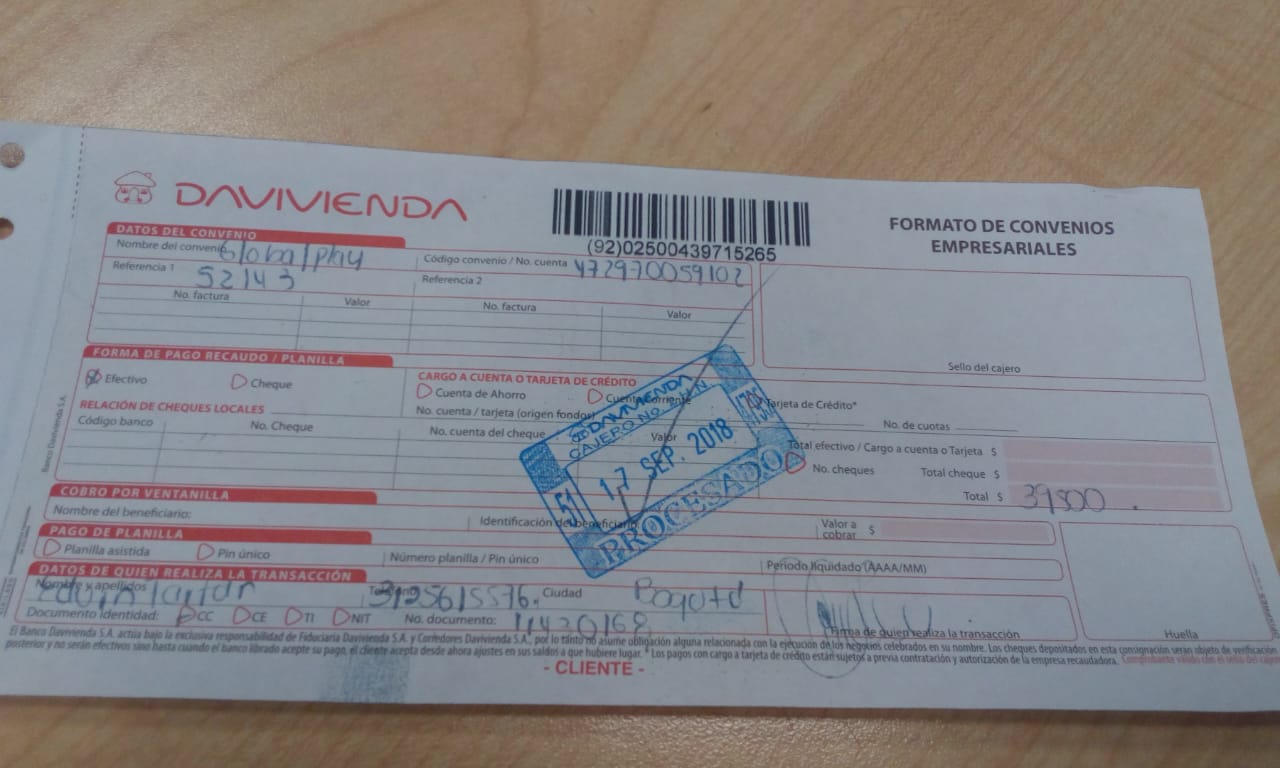 DAVIVIENDA
(92)02500439715265
FORMATO DE CONVENIOS
EMPRESARIALES
DATOS DEL CONVENIO
Nombre del convenio Global play
Código convenio / No. cuenta 472970059102
Referencia 1 52143
Referencia 2
No. factura Valor No. factura Valor
Sello del cajero
FORMA DE PAGO RECAUDO / PLANILLA
Efectivo Cheque
CARGO A CUENTA O TARJETA DE CRÉDITO
Cuenta de Ahorro Cuenta Corriente Tarjeta de Crédito*
No. cuenta / tarjeta (origen fondos) No. de cuotas
RELACIÓN DE CHEQUES LOCALES
Código banco No. Cheque No. cuenta del cheque Valor
Total efectivo / Cargo a cuenta o Tarjeta $
No. cheques Total cheque $
Total $ 39800
DAVIVIENDA
CAJERO No.
51 17 SEP. 2018
PROCESADO
COBRO POR VENTANILLA
Nombre del beneficiario: Identificación del beneficiario Valor a
cobrar $
PAGO DE PLANILLA
Planilla asistida Pin único Número planilla / Pin único Periodo liquidado (AAAA/MM)
DATOS DE QUIEN REALIZA LA TRANSACCIÓN
Nombre y apellidos Teléfono 3125615576. Ciudad Bogotá
Documento identidad: CC CE TI NIT No. documento: 11420168
Firma de quien realiza la transacción Huella
El Banco Davivienda S.A. actúa bajo la exclusiva responsabilidad de Fiduciaria Davivienda S.A. y Corredores Davivienda S.A., por lo tanto no asume obligación alguna relacionada con la ejecución de los negocios celebrados en su nombre. Los cheques depositados en esta consignación serán objeto de verificación
posterior y no serán efectivos sino hasta cuando el banco librado acepte su pago, el cliente acepta desde ahora ajustes en sus saldos a que hubiere lugar. * Los pagos con cargo a tarjeta de crédito están sujetos a previa contratación y autorización de la empresa recaudadora. Comprobante válido con el sello del cajero
- CLIENTE -
Banco Davivienda S.A.